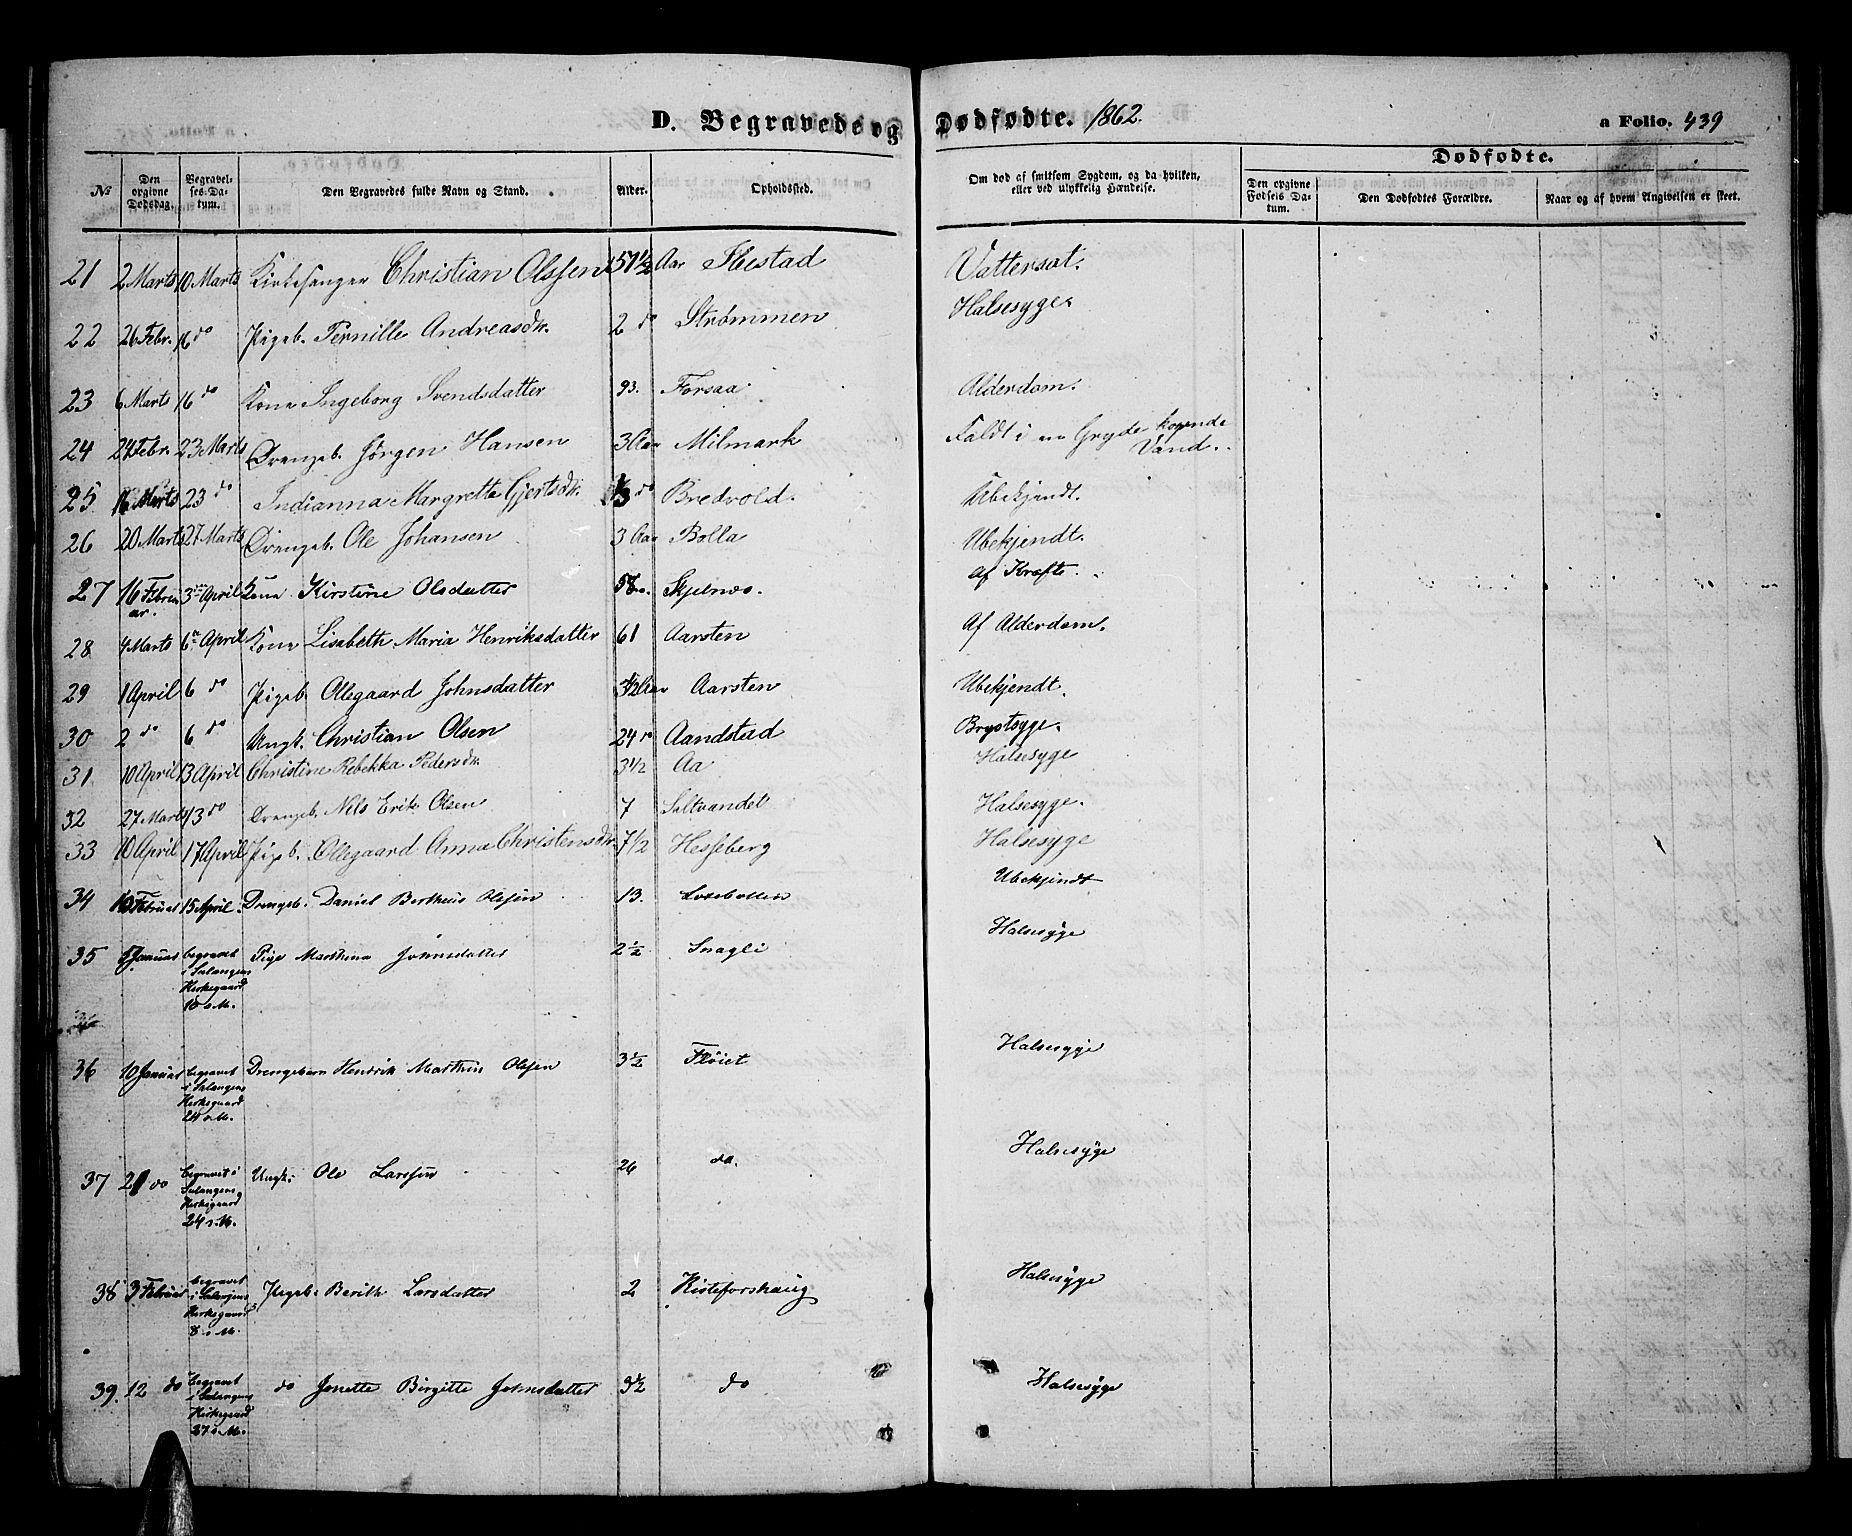 D. Begravede og Dødfødte. 1862. a Folio. 439
Dødfødte.
No Den opgivne Dødsdag. Begravelses-Datum. Den Begravedes fulde Navn og Stand. Alder. Opholdssted. Om død af smitsom Sygdom, og da hvilken, eller ved ulykkelig Hændelse. Den opgivne Fødsels Datum. Den Dødfødtes Forældre. Naar og af hvem Angivelsen er skeet.
21 2 Marts 10 Marts Kirkesanger Christian Olssen 57 1/2 Aar Ibestad Vattersot.
22 26 Febr. 16 do Pigeb. Pernille Andreasdtr. 2 do Strømmen Halsesyge
23 6 Marts 16 do Kone Ingeborg Svendsdatter 93. Forsaa Alderdom.
24 24 Febr. 23 Marts Drengeb. Jørgen Hansen 3 Aar Milmark Faldt i en Gryde kogende Vand.
25 16 Marts 23 do Indianna Margrette Gjertsdtr. 1/3 do Bredvold. Ubekjendt.
26 20 Marts 27 Marts Drengeb. Ole Johansen 3 Aar Bolla Ubekjendt.
27 16 Februar. 3die April Kone Kirstine Olsdatter 58 Skjelnes. Af Kræft.
28 4 Marts 6te April Kone Lisabeth Maria Henriksdatter 61 Aarsten Af Alderdom.
29 1 April 6 do Pigeb Ollegaard Johnsdatter 4 1/2 Aar Aarsten Ubekjendt.
30 2 do 6 do Ungk. Christian Olsen 24 do Aandstad Brystsyge.
31 10 April 13 April Christine Rebekka Pedersdtr 3 1/2 Aa Halsesyge
32 27 Marts 13 do Drengeb. Nils Erik Olsen 7 Saltvandet Halsesyge.
33 10 April 17 April Pigeb. Ollegaard Anna Christensdtr. 7 1/2 Hesseberg Halsesyge
34 10 Februar 15 April. Drengeb. Daniel Bertheus Olssen 13. Lossebotten Ubekjendt
35 5 Januar begravet i Salangens Kirkegaard 10 s.M. Pige Marthina Johnsdatter 2 1/2 Snagli Halsesyge
36 10 Januar begravet i Salangens Kirkegaard 24 s.M. Drengebarn Henrik Marthin Olssen 3 1/2 Fløiet Halsesyge
37 21 do begravet i Salangens Kirkegaard 24 s.M. Ungk. Ole Larssen 26 do. Halsesyge
38 3 Februar begravet i Salangens Kirkegaard 8 s.M. Pigeb. Berith Larsdatter 2 Kisteforshaug Halsesyge
39. 12 do begravet i Salangens Kirkegaard 27 s.M. do Jonette Birgitte Johnsdatter 3 1/2 do Halsesyge